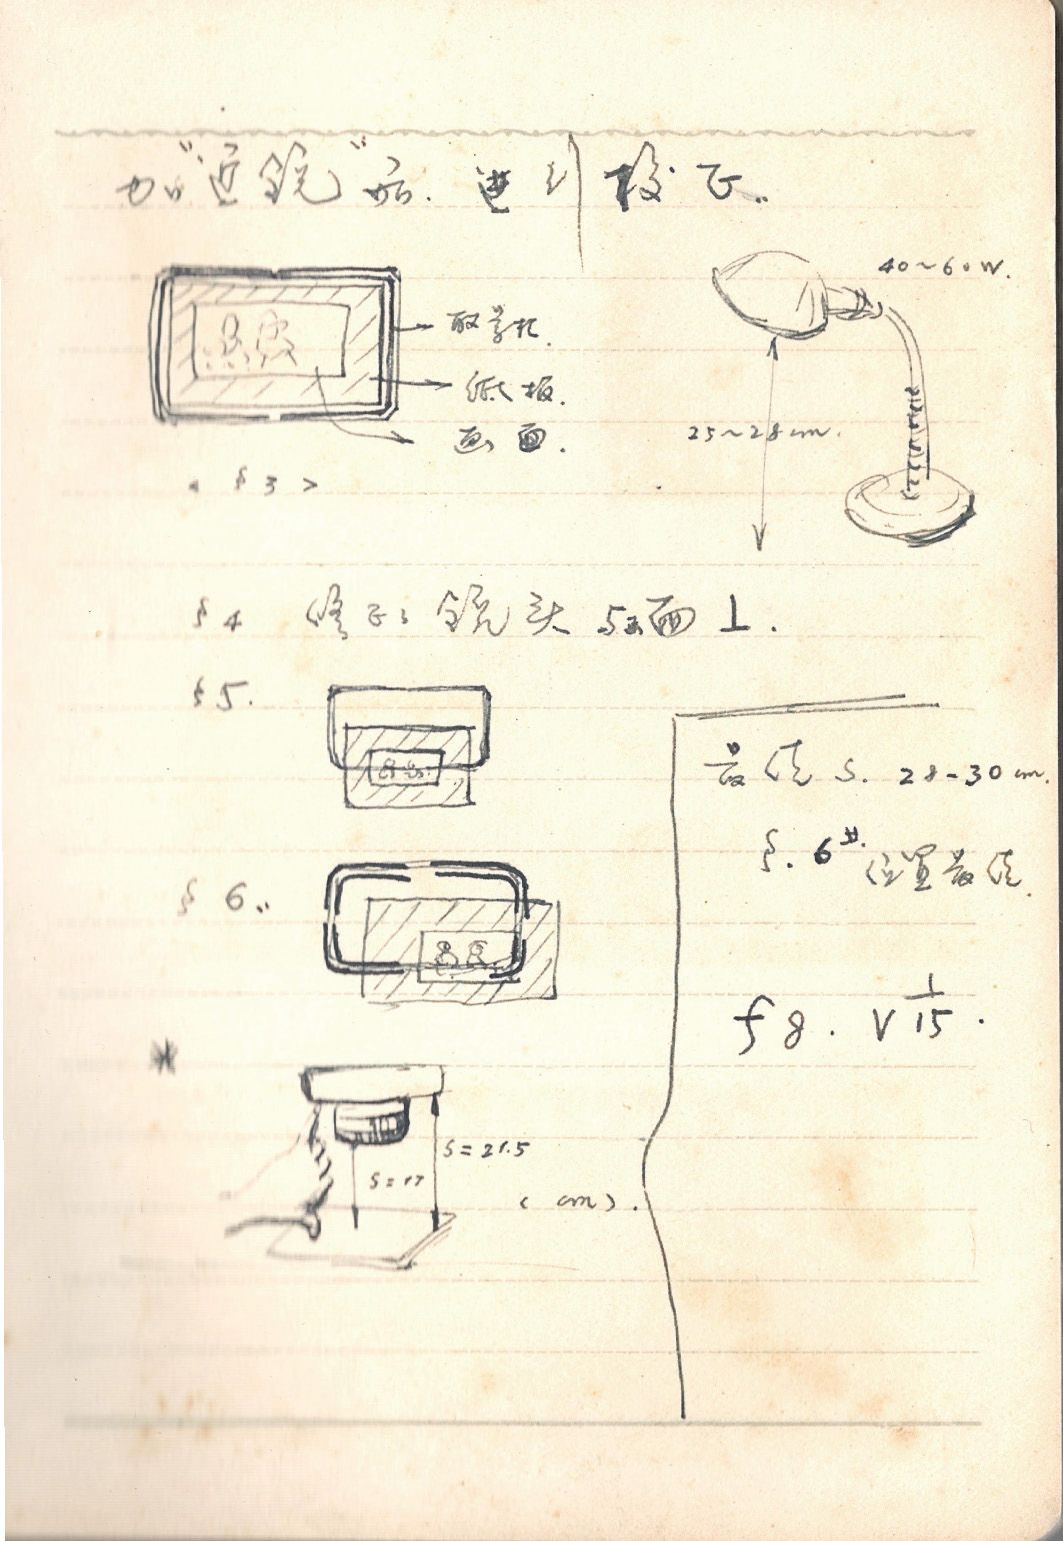 加“近鏡”后. 進行校正.
40~60W.
取景框.
纸板.
画面.
25~28cm.
<§3>
§4 修正: 鏡头与画面⊥.
§5.
最佳 S. 28-30cm.
§. 6 位置最佳.
§6..
f8. V 1/15.
*
S=21.5
S=17
(cm).